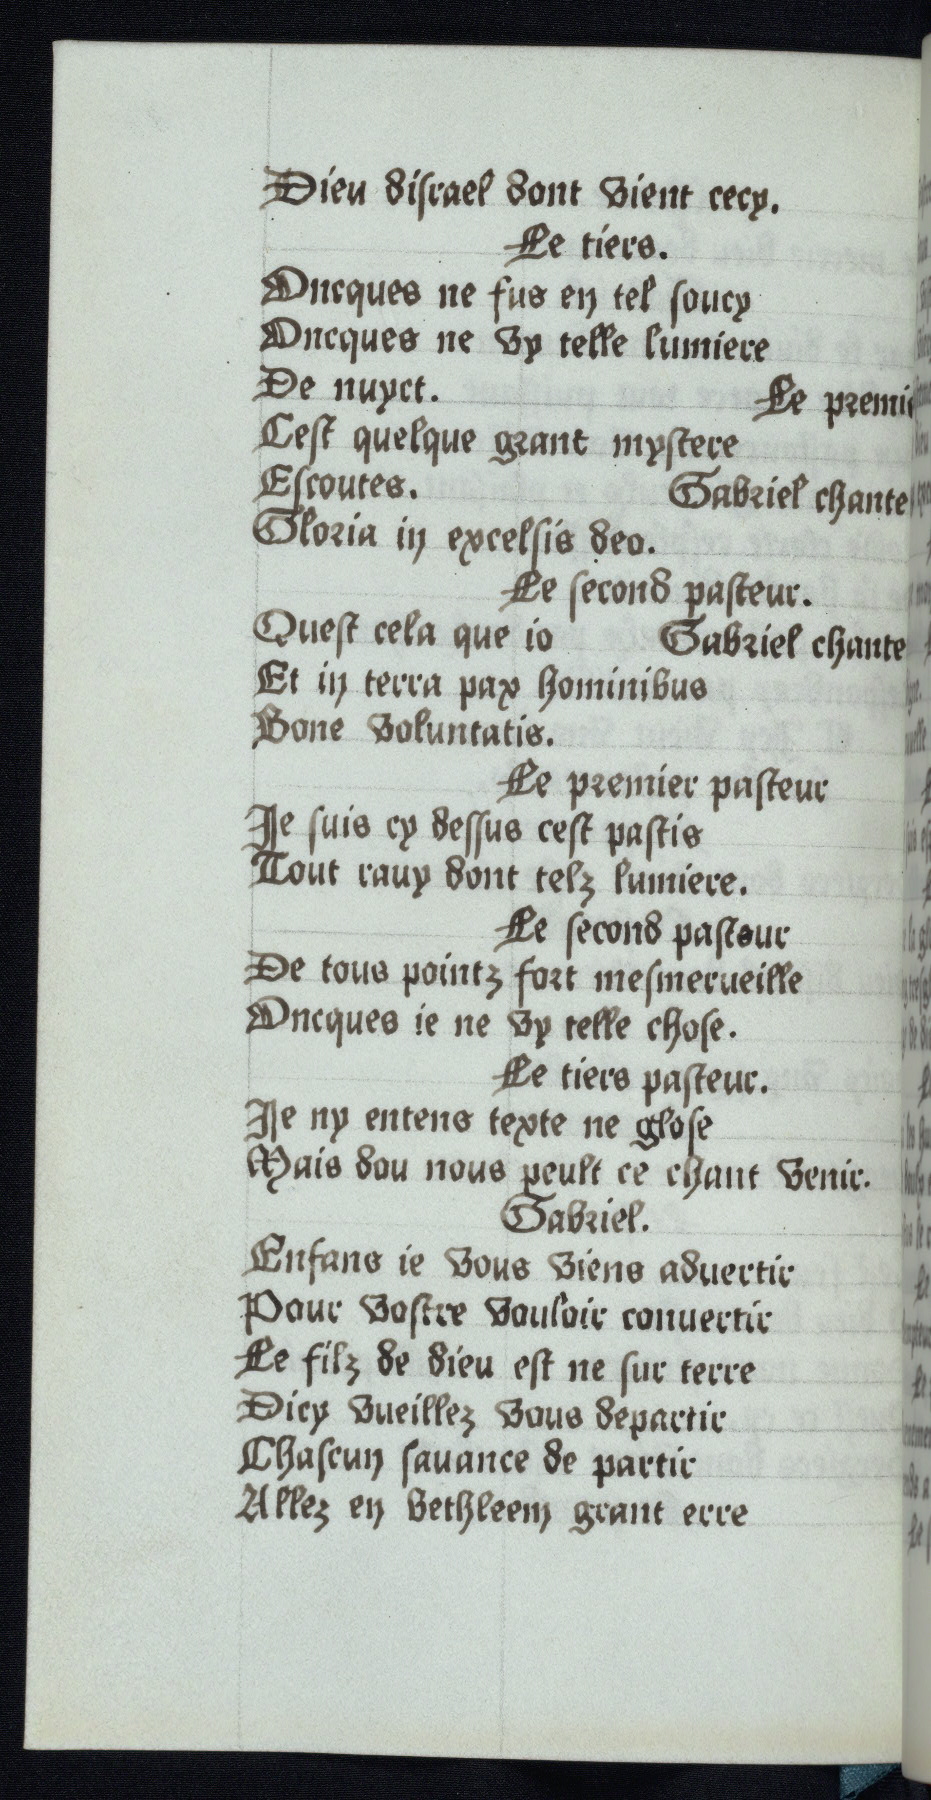 Dieu disrael dont vient cecy.
Le tiers.
Oncques ne fus en tel soucy
Oncques ne vy telle lumiere
De nuyct. Le premi
Cest quelque grant mystere
Escoutes. Gabriel chante
Gloria in excelsis deo.
Le second pasteur.
Quest cela que io Gabriel chante
Et in terra pax hominibus
Bone voluntatis.
Le premier pasteur
Je suis cy dessus cest pastis
Tout rauy dont telz lumiere.
Le second pasteur
De tous pointz fort mesmerueille
Oncques ie ne vy telle chose.
Le tiers pasteur.
Je ny entens texte ne glose
Mais dou nous peult ce chant venir.
Gabriel.
Enfans ie vous viens aduertir
Pour vostre vouloir conuertir
Le filz de dieu est ne sur terre
Dicy vueillez vous departir
Chascun sauance de partir
Allez en bethleem grant erre